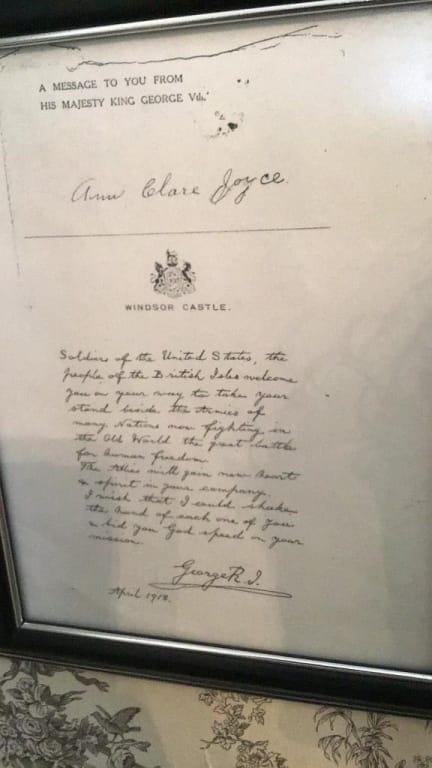 A MESSAGE TO YOU FROM
HIS MAJESTY KING GEORGE Vth.
Ann Clare Joyce
WINDSOR CASTLE.
Soldiers of the United States, the
people of the British Isles welcome
you on your way to take your
stand beside the Armies of
many Nations now fighting in
the Old World the great battle
for human freedom.
The Allies will gain new heart
& spirit in your company.
I wish that I could shake
the hand of each one of you
& bid you God speed on your
mission.
George R.I.
April 1918.